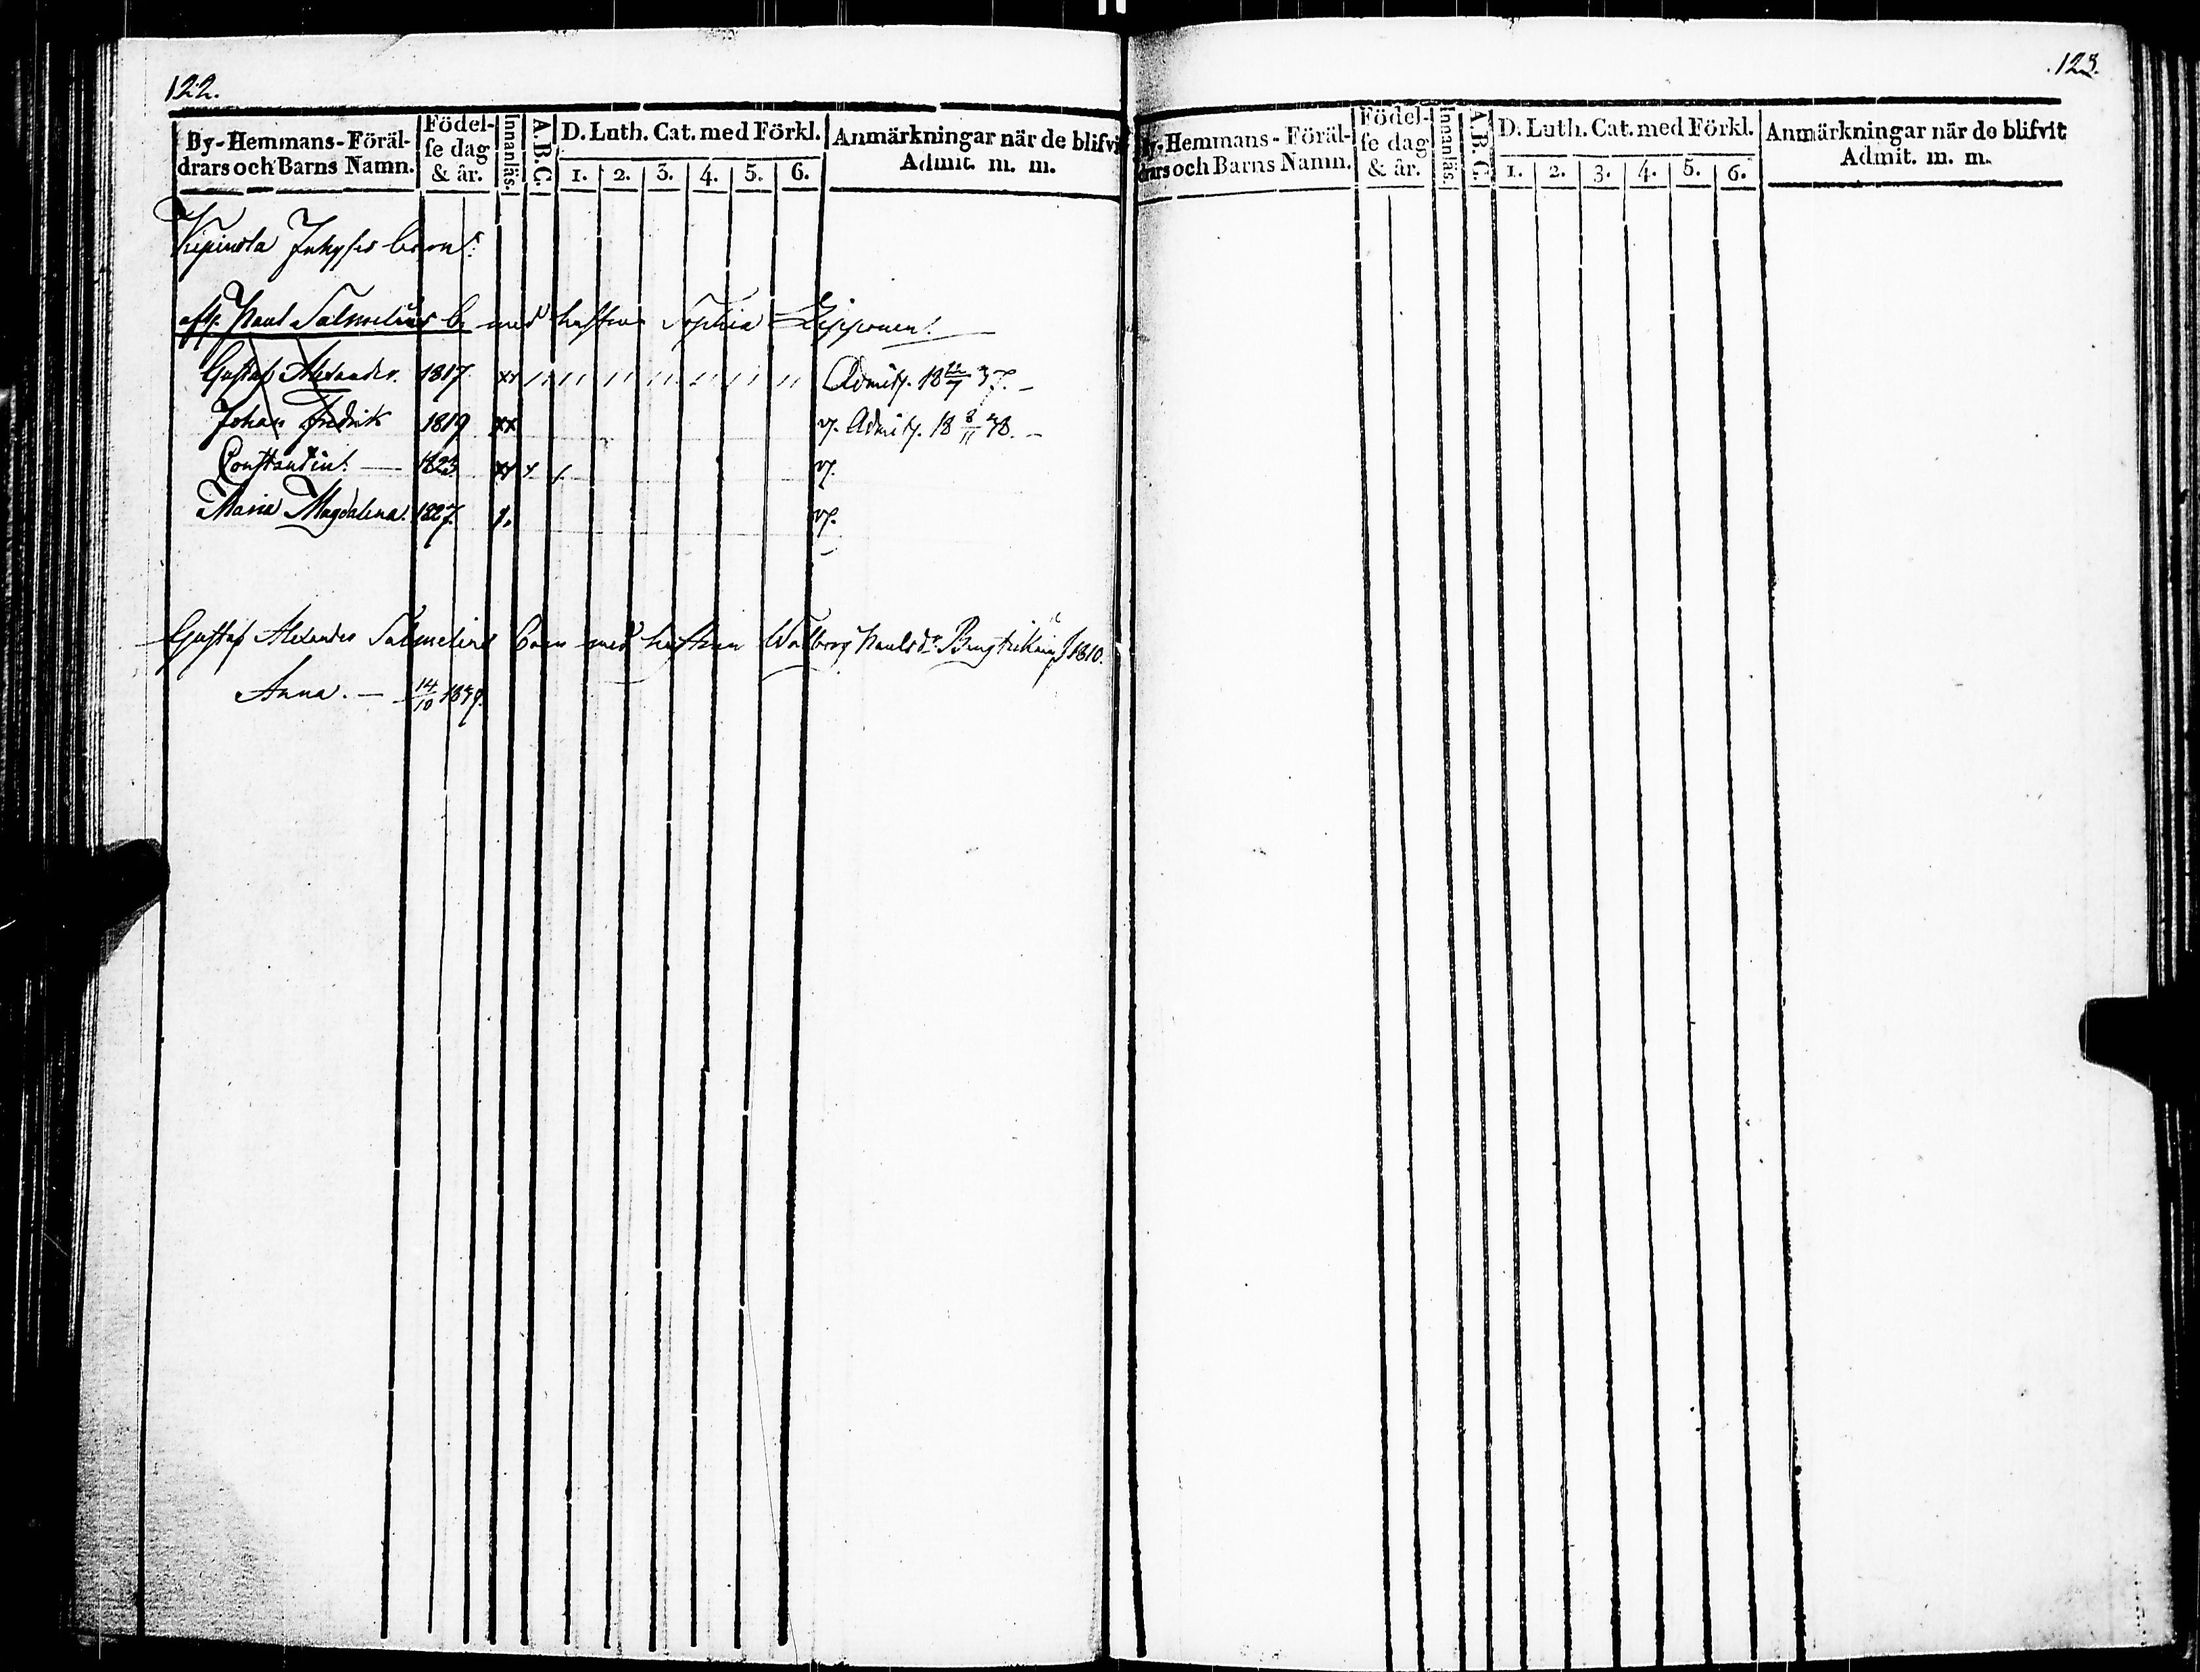 122.
By-Hemmans-Föräl-
drars och Barns Namn.
Födel-
se dag
& år.
Innanläs.
A.B.C.
D. Luth. Cat. med Förkl.
1. 2. 3. 4. 5. 6.
Anmärkningar när de blifvit
Admit. m. m.
barn:
Paul Salmelius b. med hustrun Sophia Lipponen.
Gustaf Alexander. 1817. xx Admitt. 18 22/7 37.
Johan Fredrik 1819 xx Admitt. 18 8/11 38.
Constantin. 1823 xx
Maria Magdalena. 1827.
Gustaf Alexander Salmelius barn med hustrun Walborg Paulsdr 1810.
Anna. 14/10 1839.
123.
By-Hemmans-Föräl-
drars och Barns Namn.
Födel-
se dag
& år.
Innanläs.
A.B.C.
D. Luth. Cat. med Förkl.
1. 2. 3. 4. 5. 6.
Anmärkningar när de blifvit
Admit. m. m.